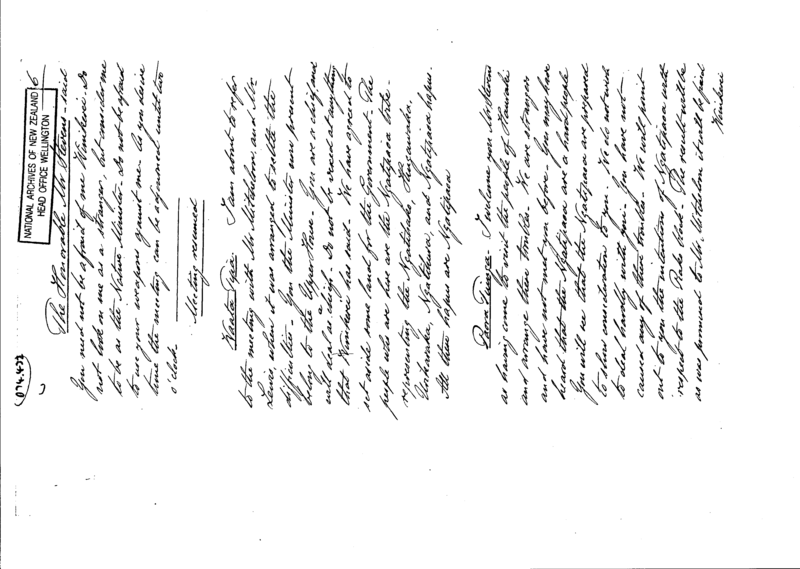 NATIONAL ARCHIVES OF NEW ZEALAND
HEAD OFFICE WELLINGTON
6
The Honorable Mr Stevens - said
You need not be afraid of me Wanikeri. Do
not look on me as a stranger, but consider me
to be as the Native Minister. Do not be afraid
to use your weapons against me. As you desire
time the meeting can be adjourned until two
o'clock.
Meeting resumed
I am about to refer
to the meeting with Mr Mitchelson, and Mr
Lewis, when it was arranged to settle the
difficulties. You the Minister was present
belong to the Upper House. You are a chief, and
will deal as a chief. Do not be vexed at anything
that Wanikeri has said. We have agreed to
set aside some land for the Government. The
people who are here are the Ngatipaoa tribe
representing the
and Ngatipaoa hapus.
All these hapus are Ngatipaoa
I welcome you Mr Stevens
as having come to visit the people of Hauraki
and arrange their troubles. We are strangers
and have not met you before. You may have
heard that the Ngatipaoa are a hard people
You will see that the Ngatipaoa are prepared
to have consideration to you. We do not wish
to deal harshly with you. You have not
caused any of these troubles. We will point
out to you the intention of Ngatipaoa with
respect to the Block. The result will be
as was promised to Mr Mitchelson it will be paid
Wanikeri